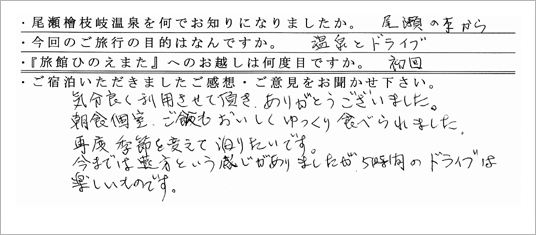 ・尾瀬檜枝岐温泉を何でお知りになりましたか。 尾瀬の本から
・今回のご旅行の目的はなんですか。 温泉とドライブ
・『旅館ひのえまた』へのお越しは何度目ですか。 初回
・ご宿泊いただきましたご感想・ご意見をお聞かせ下さい。
気分良く利用させて頂き、ありがとうございました。
朝食個室、ご飯もおいしくゆっくり食べられました。
再度季節を変えて泊りたいです。
今までは遠方という感じがありましたが、5時間のドライブは
楽しいものです。